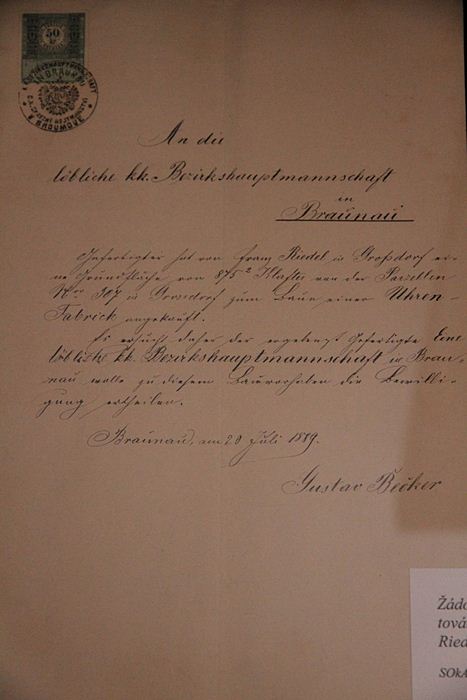 50
IN BRAUNAU
V BROUMOVĚ
An die
löbliche kk. Bezirkshauptmannschaft
in
Braunau
Gefertigter hat von Franz Riedel in Großdorf ei-
ne Grundfläche von 875² Klafter von der Parzellen
Nro 307 in Grossdorf zum Baue einer Uhren-
Fabrick angekauft.
Es ersucht daher der ergebenst Gefertigte Eine
löbliche kk. Bezirkshauptmannschaft in Brau-
nau wolle zu diesem Bauvorhaben die Bewilli-
gung ertheilen.
Braunau, am 20 Juli 1889.
Gustav Becker
Žádo
tová
Ried
SOkA